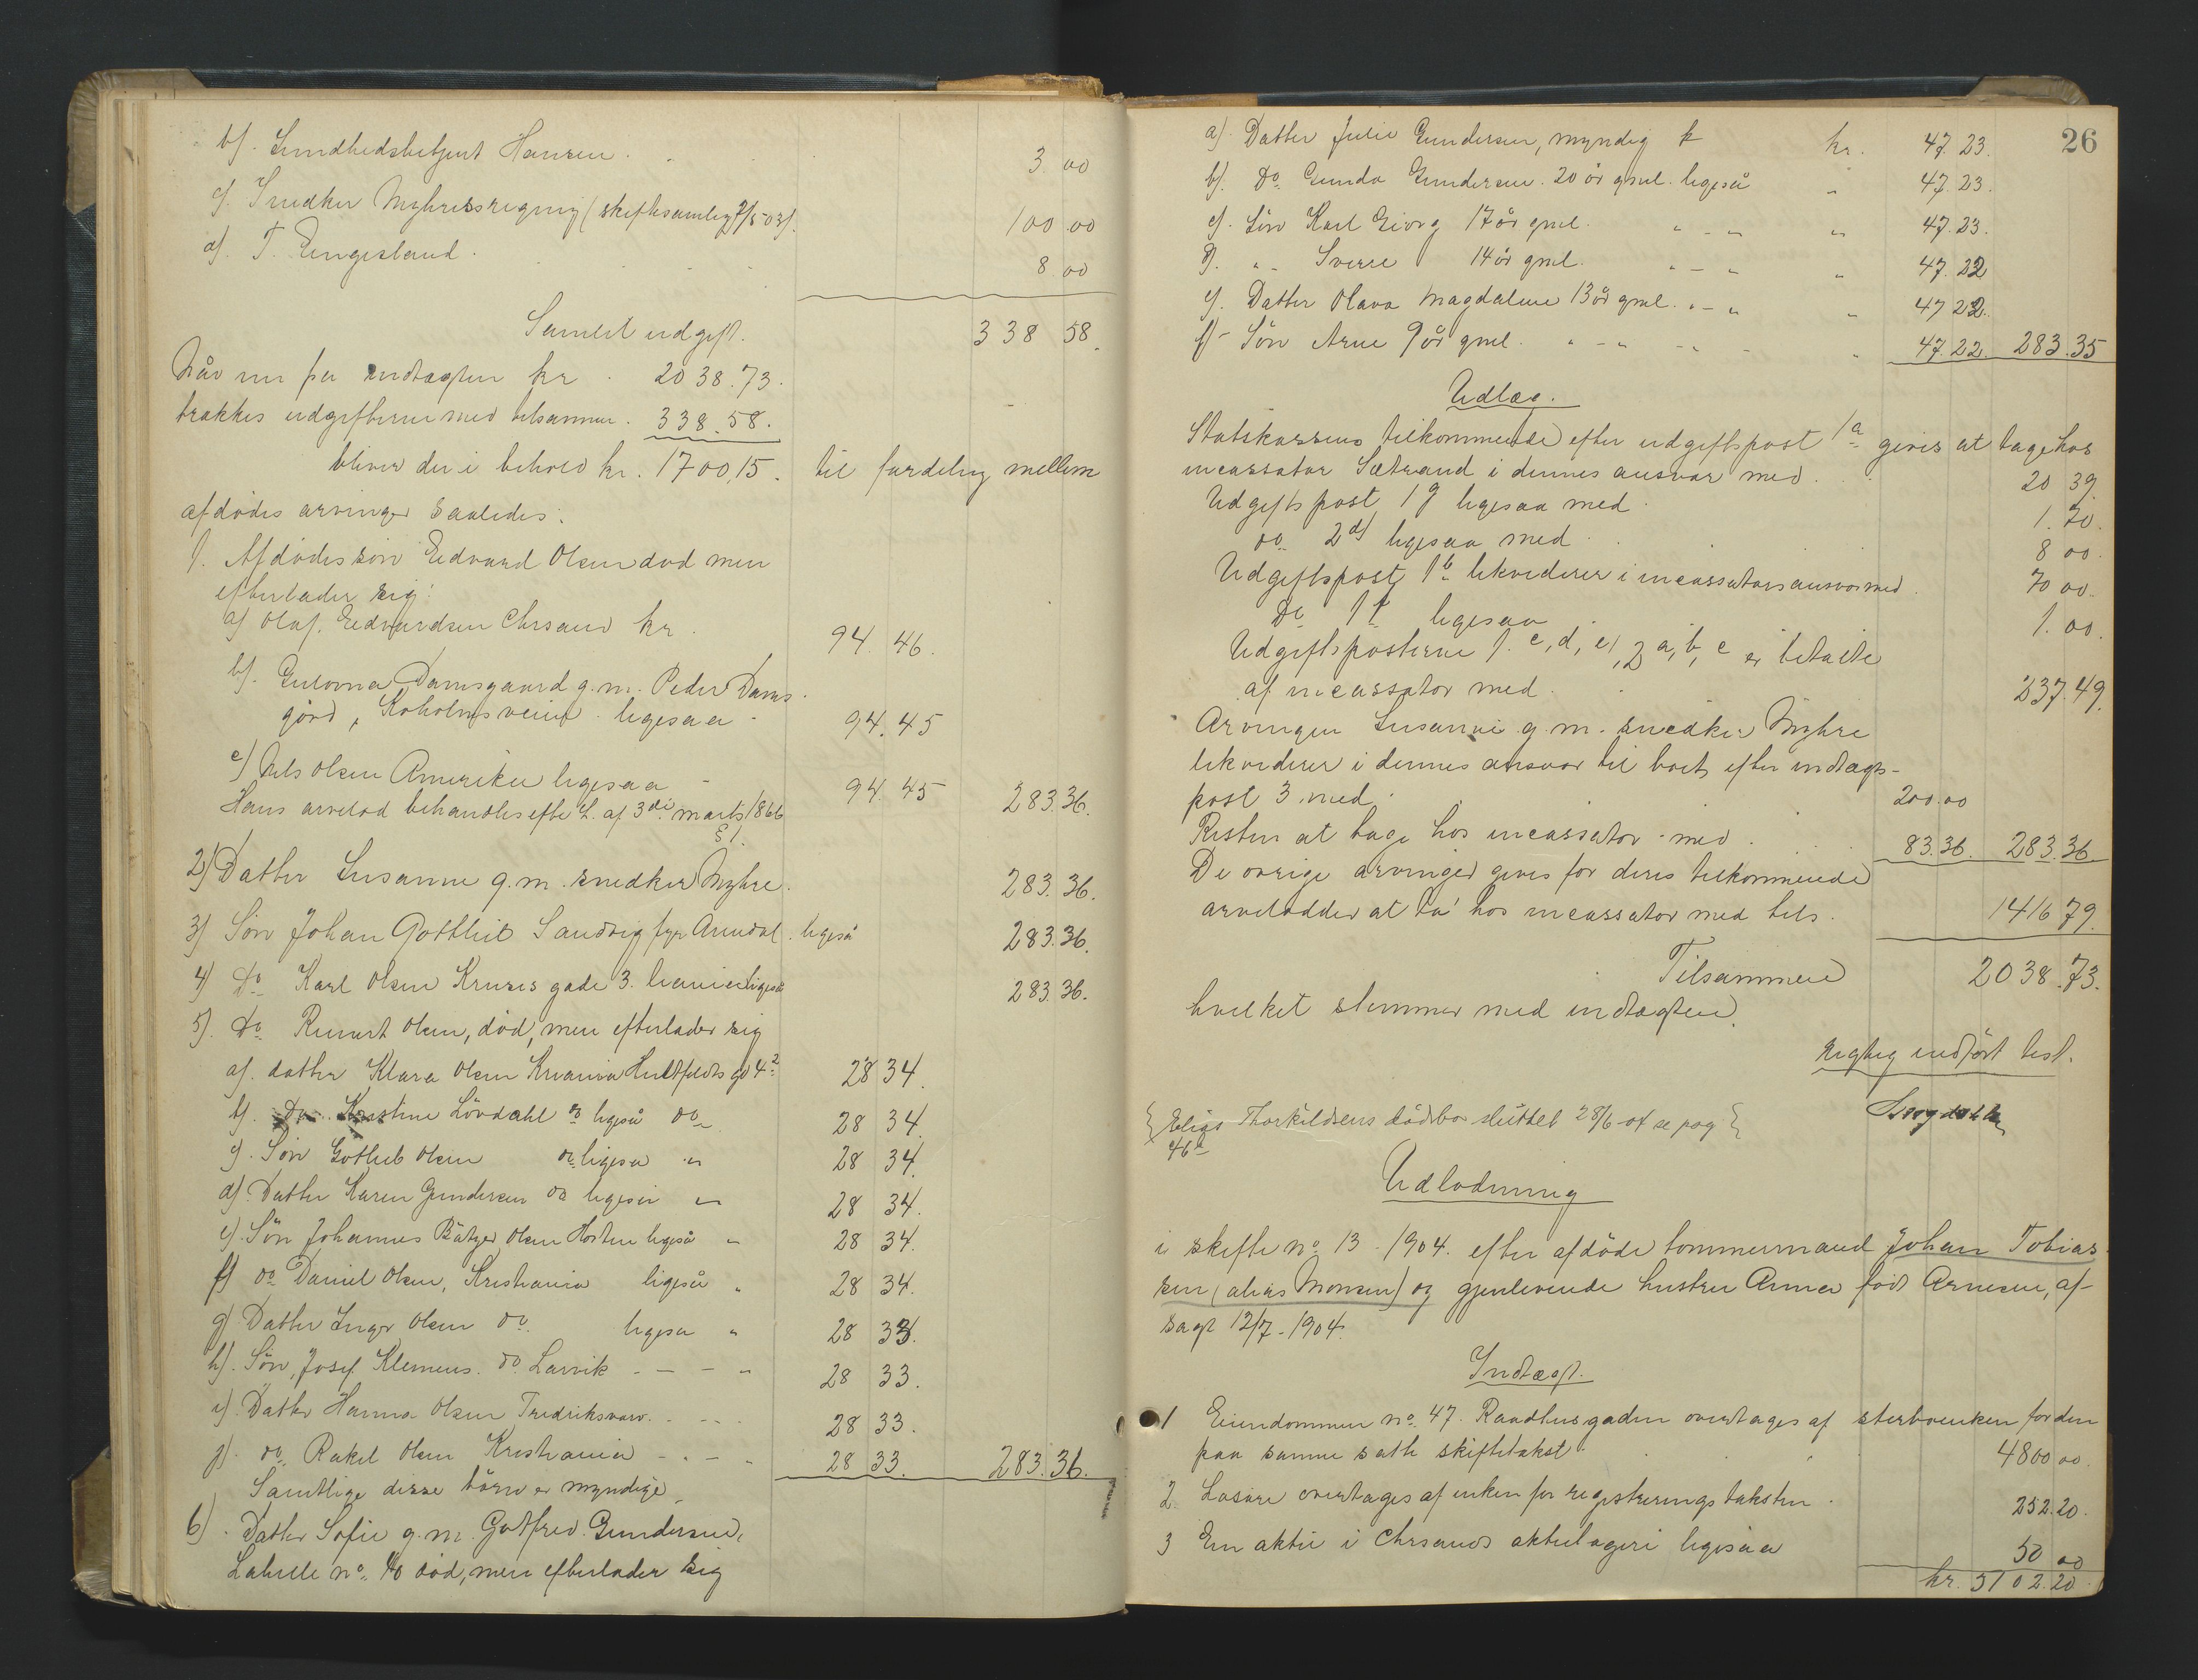 b). Sundhedsbetjent Hansen. 3 00
c). Snedker Myhres regning (skiftesamling 7/5-03). 100 00
d). T. Eengesland. 8 00
Samlet udgift. 338 58.
Når nu fra indtægten kr. 2038.73.
trækkes udgifterne med tilsammen. 338.58.
bliver der i behold kr. 1700,15. til fordeling mellem
afdødes arvinger saaledes:
1. Afdødes søn Edvard Olsen død men
efterlader sig:
a) Olaf Edvardsen Chrsand kr. 94.46.
b). Gulovna Damsgaard g.m. Peder Dams-
gård, Koholmsveien ligesaa 94.45
c) Nils Olsen Amerika ligesaa 94.45 283.36.
Hans arvelod behandles efter L. af 3die marts 1866
§ 1.
2) Datter Susanne g.m. snedker Myhre. 283.36.
3) Søn Johan Gottlieb Sandvig fyr Arendal. ligeså 283.36.
4) Do Karl Olsen Kruses gade 3. ligeså 283.36.
5). do Reinert Olsen, død, men efterlader sig
a). datter Klara Olsen Krania Huitfeldts gd 4² 28 34.
b). Do Kristine Lövdahl do ligeså do 28 34.
c). Søn Gotlieb Olsen do ligesa " 28 34.
d). Datter Karen Gundersen do ligeså " 28 34.
e). Søn Johannes Olsen Horten ligeså " 28 34.
f) do Daniel Olsen, Kristiania ligeså " 28 34.
g) Datter Inga Olsen do ligesa " 28 33.
h). Søn, Josef Klemens do Larvik - - - " 28 33.
i) Datter Hanna Olsen Fredriksværn. - - - 28 33.
j). do Rakel Olsen Kristiania - - - 28 33. 283.36.
Samtlige disse børn er myndige.
6). Datter Sofie g.m. Gotfred Gundersen,
Lahelle no død, men efterlader sig
26
a). Datter Julie Gundersen, myndig kr. 47.23.
b). Do Gunda Gundersen 20 år gml. ligeså " 47.23.
c). Søn Karl Georg 17 år gml. " - " " 47.23.
d). " Sverre 14 år gml. " - " " 47.22
e). Datter Olava Magdalene 13 år gml. " - " " 47 22.
f) - Søn Arne 9 år gml. " - " - " - " 47.22 283.35
Udlæg.
Statskassens tilkommende efter udgiftspost 1a gives at tage hos
incassator Sætrand i dennes ansvar med. 20 39.
Udgiftspost 1g ligesaa med. 1.70.
do 2d) ligesaa med. 8 00.
Udgiftspost 1b likviderer i incassators ansvar med. 70 00.
Do 1f ligesaa 1.00.
Udgiftsposterne 1. c, d, e, 2 a, b, c er betalte
af incassator med. 237.49.
Arvingen Susanne g.m. snedker Myhre
likviderer i dennes ansvar til boet efter indtægts-
post 3 med. 200.00
Resten at tage hos incassator med. 83.36. 283.36.
De øvrige arvinger gives for deres tilkommende
arvelodder at ta' hos incassator med tils. 1416 79.
Tilsammen 2038.73.
hvilket stemmer med indtægten.
Rigtig indført test.
Thorkildsens dødsbo sluttet 28/6-04 se pag
46a
Udlodning
i skifte no 13-1904. efter afdøde tømmermand Johan Tobias-
sen (alias Monsen) og gjenlevende hustru Anna født Arnesen, af-
sagt 12/7-1904.
Indtægt.
1 Eiendommen no 47. Raadhusgaden overtages af sterboenken for den
paa samme satte skiftetakst. 4800 00.
2. Løsøre overtages af enken for registreringstaksten. 252.20.
3 En aktie i Chrsands aktieølageri ligesaa 50 00
kr. 5102.20